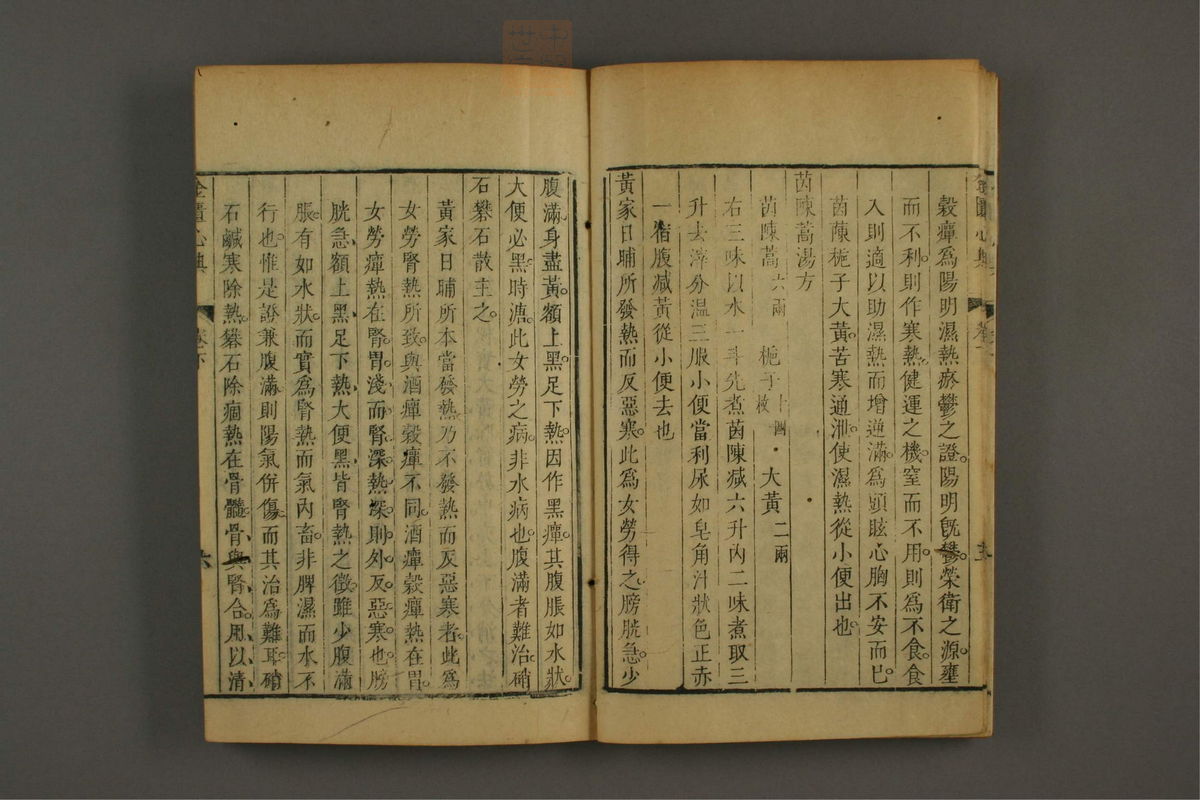 穀癉爲陽明濕熱瘀鬱之證陽明旣鬱榮衛之源壅
而不利則作寒熱健運之機窒而不用則爲不食食
入則適以助濕熱而增逆滿爲頭眩心胸不安而已
茵蔯梔子大黃苦寒通泄使濕熱從小便出也
茵陳蒿湯方
茵陳蒿六兩 梔子十四枚 大黃二兩
右三味以水一斗先煮茵陳减六升內二味煮取三
升去滓分温三服小便當利尿如皂角汁狀色正赤
一宿腹减黃從小便去也
黃家日晡所發熱而反惡寒此爲女勞得之膀胱急少
腹滿身盡黃額上黑足下熱因作黑癉其腹脹如水狀
大便必黑時溏此女勞之病非水病也腹滿者難治硝
石礬石散主之
黃家日晡所本當發熱乃不發熱而反惡寒者此爲
女勞腎熱所致與酒癉穀癉不同酒癉穀癉熱在胃
女勞癉熱在腎胃淺而腎深熱深則外反惡寒也膀
胱急額上黑足下熱大便黑皆腎熱之徵雖少腹滿
脹有如水狀而實爲腎熱而氣內畜非脾濕而水不
行也惟是證兼腹滿則陽氣併傷而其治爲難耳硝
石鹹寒除熱礬石除痼熱在骨髓骨與腎合用以清
金匱心典 卷下 六